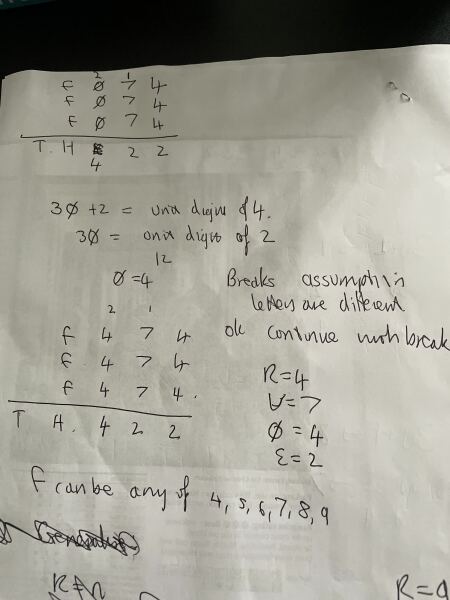 2 1
f Ø 7 4
f Ø 7 4
f Ø 7 4
T. H 2 2
4
3Ø + 2 = unit digits of 4.
3Ø = unit digits of 2
12
Ø = 4
Breaks assumption
letters are different
ok continue with break
2 1
f 4 7 4
f 4 7 4
f 4 7 4.
T H. 4 2 2
R = 4
U = 7
Ø = 4
Ɛ = 2
f can be any of 4, 5, 6, 7, 8, 9